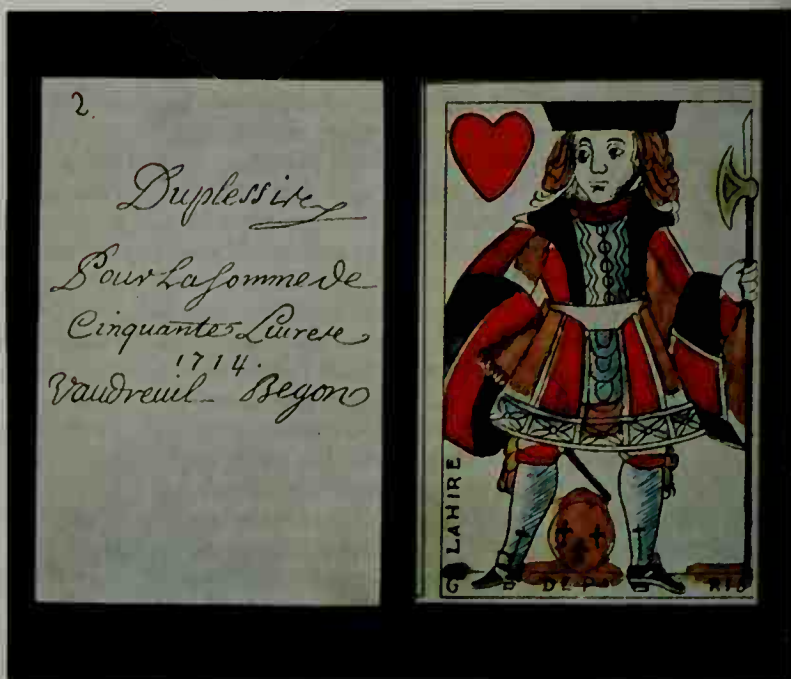 2.
Duplessis
Pour La Somme de
Cinquante Livres
1714.
Vaudreuil - Begon
LAHIRE
G D DEPA RIS